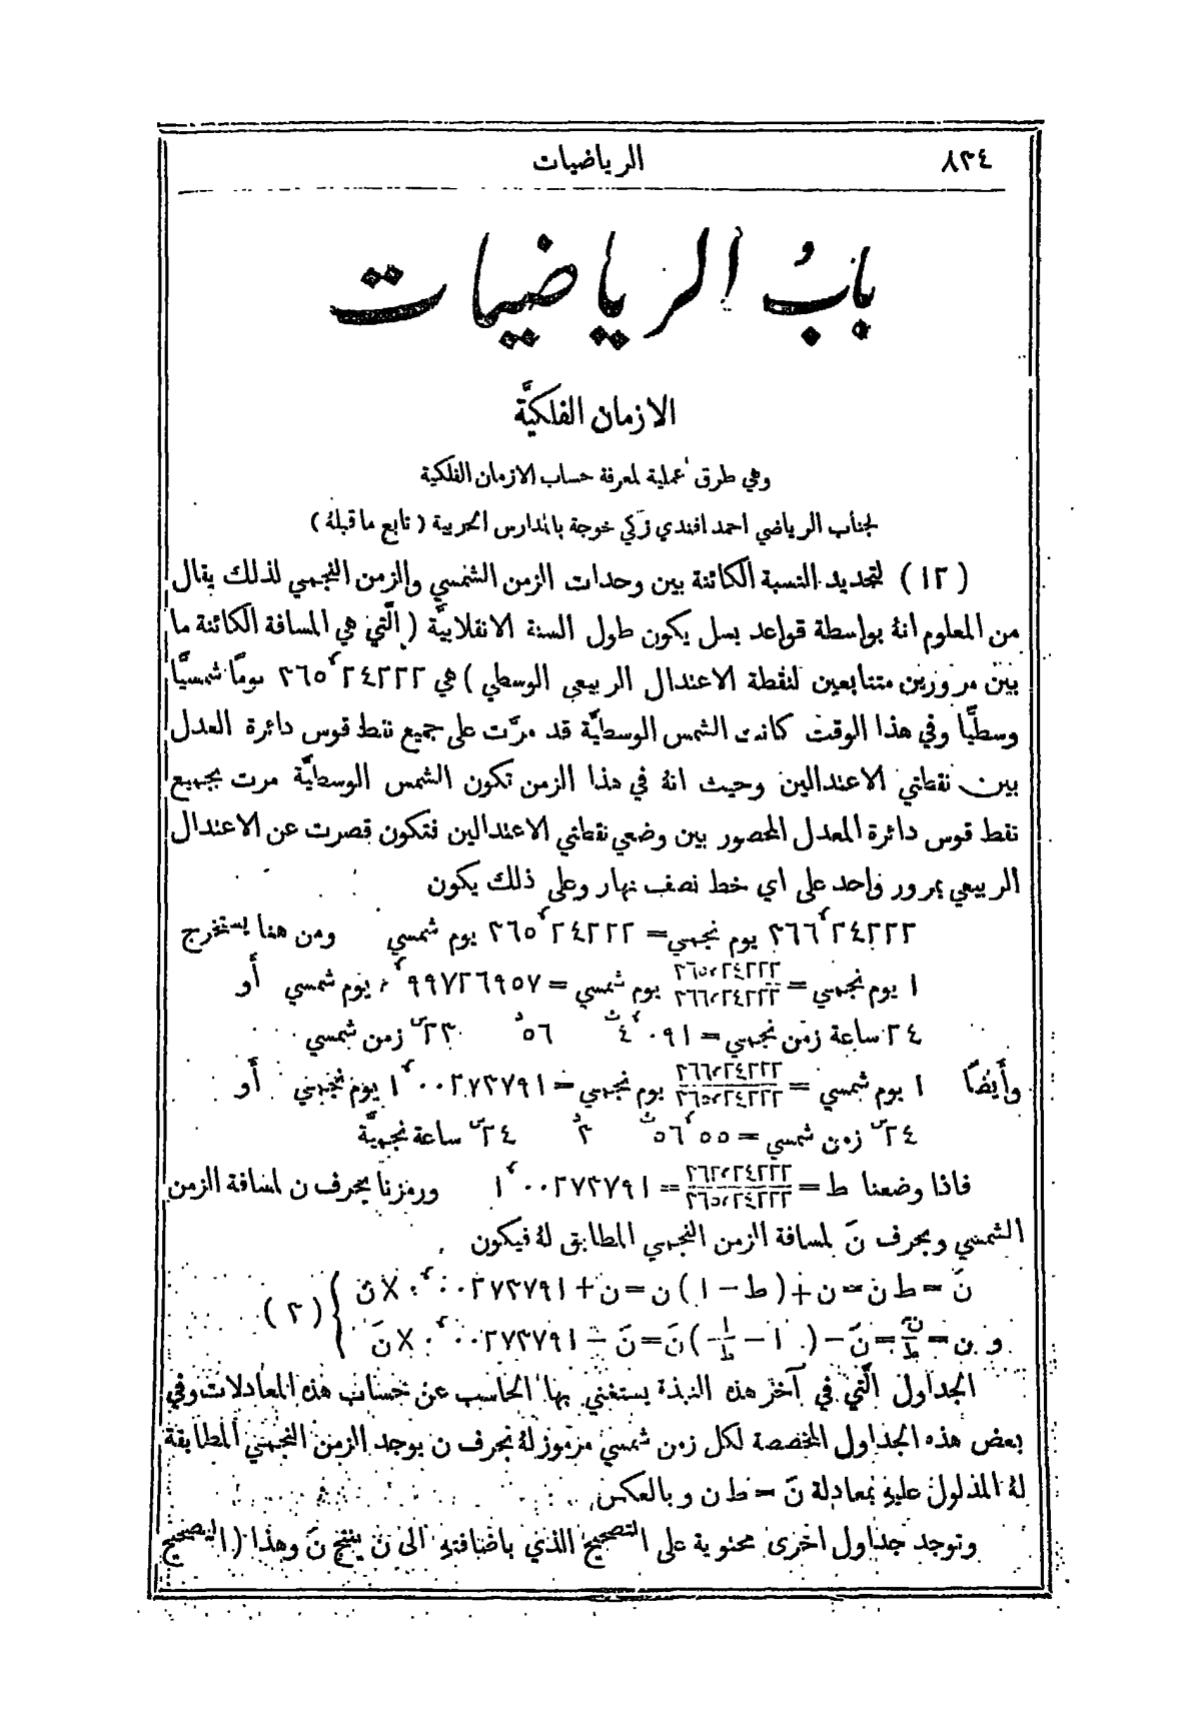 ٨٣٤ الرياضيات
بابُ الرياضيات
الازمان الفلكيَّة
وهي طرق عملية لمعرفة حساب الازمان الفلكية
لجناب الرياضي احمد افندي زكي خوجة بالمدارس الحربية ( تابع ما قبلهُ )
( ١٢ ) لتحديد النسبة الكائنة بين وحدات الزمن الشمسي والزمن النجمي لذلك يقال
من المعلوم انهُ بواسطة قواعد بسل يكون طول السنة الانقلابيَّة ( الَّتي هي المسافة الكائنة ما
بين مرورين متتابعين لنقطة الاعتدال الربيعي الوسطي ) هي ٣٦٥٬٢٤٢٢٢ يومًا شمسيًّا
وسطيًّا وفي هذا الوقت كانت الشمس الوسطيَّة قد مرَّت على جميع نقط قوس دائرة العدل
بين نقطتي الاعتدالين وحيث انهُ في هذا الزمن تكون الشمس الوسطيَّة مرت بجميع
نقط قوس دائرة المعدل المحصور بين وضعي نقطتي الاعتدالين فتكون قصرت عن الاعتدال
الربيعي بمرور واحد على اي خط نصف نهار وعلى ذلك يكون
٣٦٦٬٢٤٢٢٢ يوم نجمي = ٣٦٥٬٢٤٢٢٢ يوم شمسي ومن هنا يستخرج
١ يوم نجمي = ٣٦٥٬٢٤٢٢٢/٣٦٦٬٢٤٢٢٢ يوم شمسي = ٠٬٩٩٧٢٦٩٥٧ يوم شمسي أو
٢٤ ساعة زمن نجمي = ٤٬٠٩١ث ٥٦د ٢٣س زمن شمسي
وأَيضًا ١ يوم شمسي = ٣٦٦٬٢٤٢٢٢/٣٦٥٬٢٤٢٢٢ يوم نجمي = ١٬٠٠٢٧٣٧٩١ يوم نجمي أو
٢٤س زمن شمسي = ٥٦٬٥٥ث ٣د ٢٤س ساعة نجميَّة
فاذا وضعنا ط = ٣٦٦٬٢٤٢٢٢/٣٦٥٬٢٤٢٢٢ = ١٬٠٠٢٧٣٧٩١ ورمزنا بحرف ن لمسافة الزمن
الشمسي وبحرف نَ لمسافة الزمن النجمي المطابق لهُ فيكون
نَ = ط ن = ن + ( ط − ١ ) ن = ن + ٠٬٠٠٢٧٣٧٩١ × ن
و ن = نَ/ط = نَ − ( ١ − ١/ط ) نَ = نَ − ٠٬٠٠٢٧٣٧٩١ × نَ } ( ٢ )
الجداول الَّتي في آخر هذه النبذة يستغني بها الحاسب عن حساب هذه المعادلات وفي
بعض هذه الجداول المخصصة لكل زمن شمسي مرموز لهُ بحرف ن يوجد الزمن النجمي المطابقة
لهُ المدلول عليهِ بمعادلة نَ = ط ن وبالعكس
وتوجد جداول اخرى محتوية على التصحيح الذي باضافتهِ الى ن ينتج نَ وهذا ( التصحيح